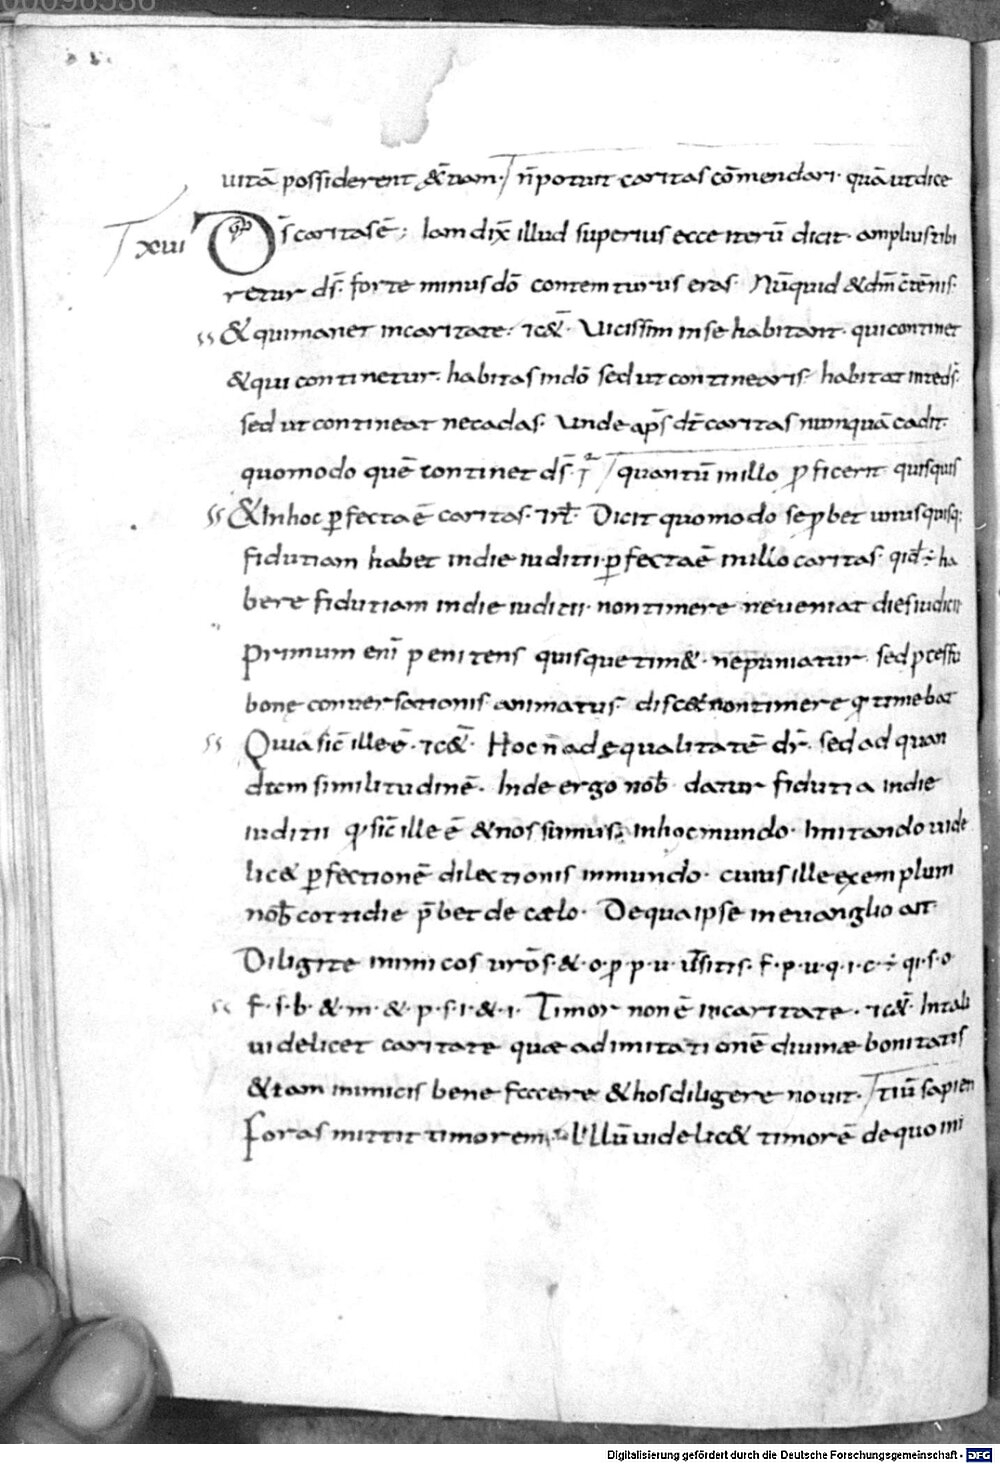 00096536
uitā possiderent &̄nam· n̄ potuit caritas cōmendari· quā ut dice
xiiii D̄s caritas ē; Iam dix̄ illud superius ecce iterū dicit· amplius tibi
retur ds̄· forte minus dō contemturus eras· Nūquid & dm̄
& qui manet in caritate· ⁊c&̄· Uicissim in se habitant· qui continet
& qui continetur· habitas in dō sed ut continearis· habitat in te ds̄·
sed ut contineat ne cadas· Unde aps̄ dt̄ caritas numquā cadit·
quomodo quē continet ds̄· quantū in illo ꝓficerit quisquis
& In hoc ꝑfecta ē caritas· Dicit quomodo se ꝓbet unusquisq;
fidutiam habet in die iuditii· ꝑfecta ē in illo caritas· qid ÷ ha
bere fidutiam in die iuditii· non timere ne ueniat dies iudicii
Primum enī penitens quisque tim&· ne puniatur· sed pcessu
bonę conuersationis animatus· disc& non timere qd timebat
Quia sic̄ ille ē· ⁊c&̄· Hoc n̄ ad ęqualitatē dr̄· sed ad quan
dem similitudinē· Inde ergo nob̄ datur fidutia in die
iuditii qd sic̄ ille ē & nos sumus in hoc mundo· Imitando uide
lic& ꝑfectionē dilectionis in mundo· cuius ille exemplum
nob̄ cottidie p̄bet de cælo· De qua ipse in euanglio ait·
Diligite inimicos urōs· &·o·ꝓ p·u· ut sitis· f·p·u·q·i·c·÷ qi·s·o
f·s·b·&·m·&·p·s·i·&·i· Timor non ē in caritate· ⁊c&̄· In tali
uidelicet caritate quæ ad imitationē diuinæ bonitatis
&iam inimicis bene facere & hos diligere nouit· Itiū sapien
Foras mittit timorem Illū uidelic& timorē de quo mi
Digitalisierung gefördert durch die Deutsche Forschungsgemeinschaft - DFG